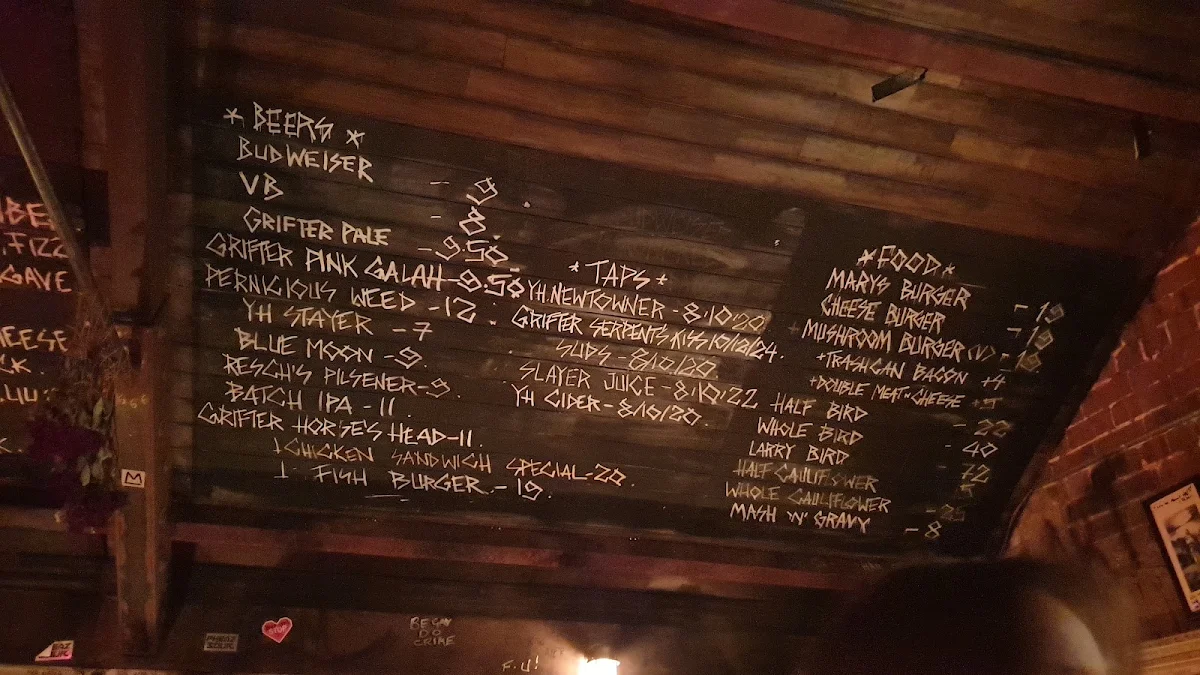 * BEERS *
BUDWEISER - 9
VB - 8
GRIFTER PALE - 9.50
GRIFTER PINK GALAH - 9.50
PERNICIOUS WEED - 12.
YH STAYER - 7
BLUE MOON - 9.
RESCH'S PILSENER - 9.
BATCH IPA - 11
GRIFTER HORSE'S HEAD - 11.
CHICKEN SANDWICH SPECIAL - 20.
FISH BURGER - 19.
* TAPS *
YH NEWTOWNER - 8.10.20
GRIFTER SERPENTS KISS 10/12/24.
SUDS - 8/10/20.
SLAYER JUICE - 8.10.22
YH CIDER - 8/10/20.
* FOOD *
MARYS BURGER
CHEESE BURGER
MUSHROOM BURGER (V)
+TRASHCAN BACON +4
+DOUBLE MEAT 'N' CHEESE
HALF BIRD - 22
WHOLE BIRD - 40
LARRY BIRD - 72
HALF CAULIFLOWER
WHOLE CAULIFLOWER
MASH 'N' GRAVY - 8
FIZZ
GAVE
BE GAY
DO
CRIME
F.U!
M